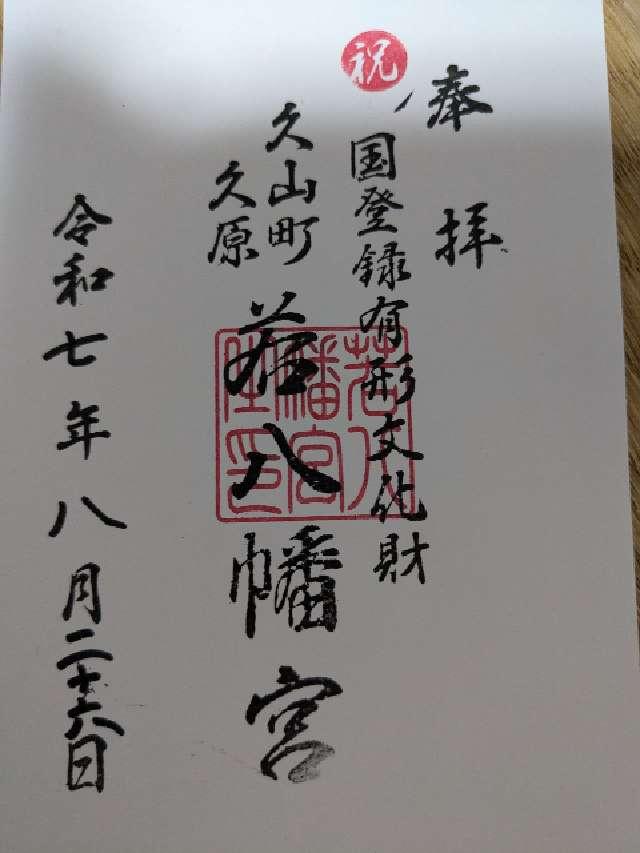 奉拝
祝
国登録有形文化財
久山町
久原
若八幡宮
若八幡宮
令和七年八月二十六日